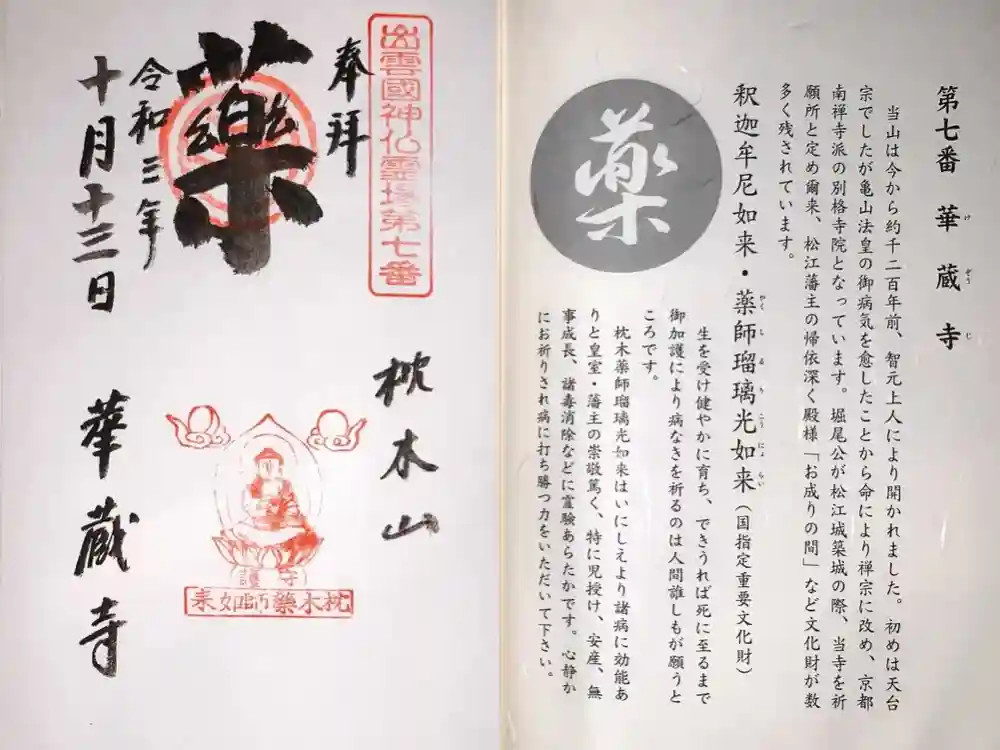 第七番 華蔵寺
けぞうじ
当山は今から約千二百年前、智元上人により開かれました。初めは天台
宗でしたが亀山法皇の御病気を愈したことから命により禅宗に改め、京都
南禅寺派の別格寺院となっています。堀尾公が松江城築城の際、当寺を祈
願所と定め爾来、松江藩主の帰依深く殿様「お成りの間」など文化財が数
多く残されています。
釈迦牟尼如来・薬師瑠璃光如来(国指定重要文化財)
やくしるりこうにょらい
薬
生を受け健やかに育ち、できうれば死に至るまで
御加護により病なきを祈るのは人間誰しもが願うと
ころです。
枕木薬師瑠璃光如来はいにしえより諸病に効能あ
りと皇室・藩主の崇敬篤く、特に児授け、安産、無
事成長、諸毒消除などに霊験あらたかです。心静か
にお祈りされ病に打ち勝つ力をいただいて下さい。
出雲國神仏霊場第七番
奉拝
薬
令和三年
十月十三日
枕木山
守護
枕木藥師如来
華蔵寺